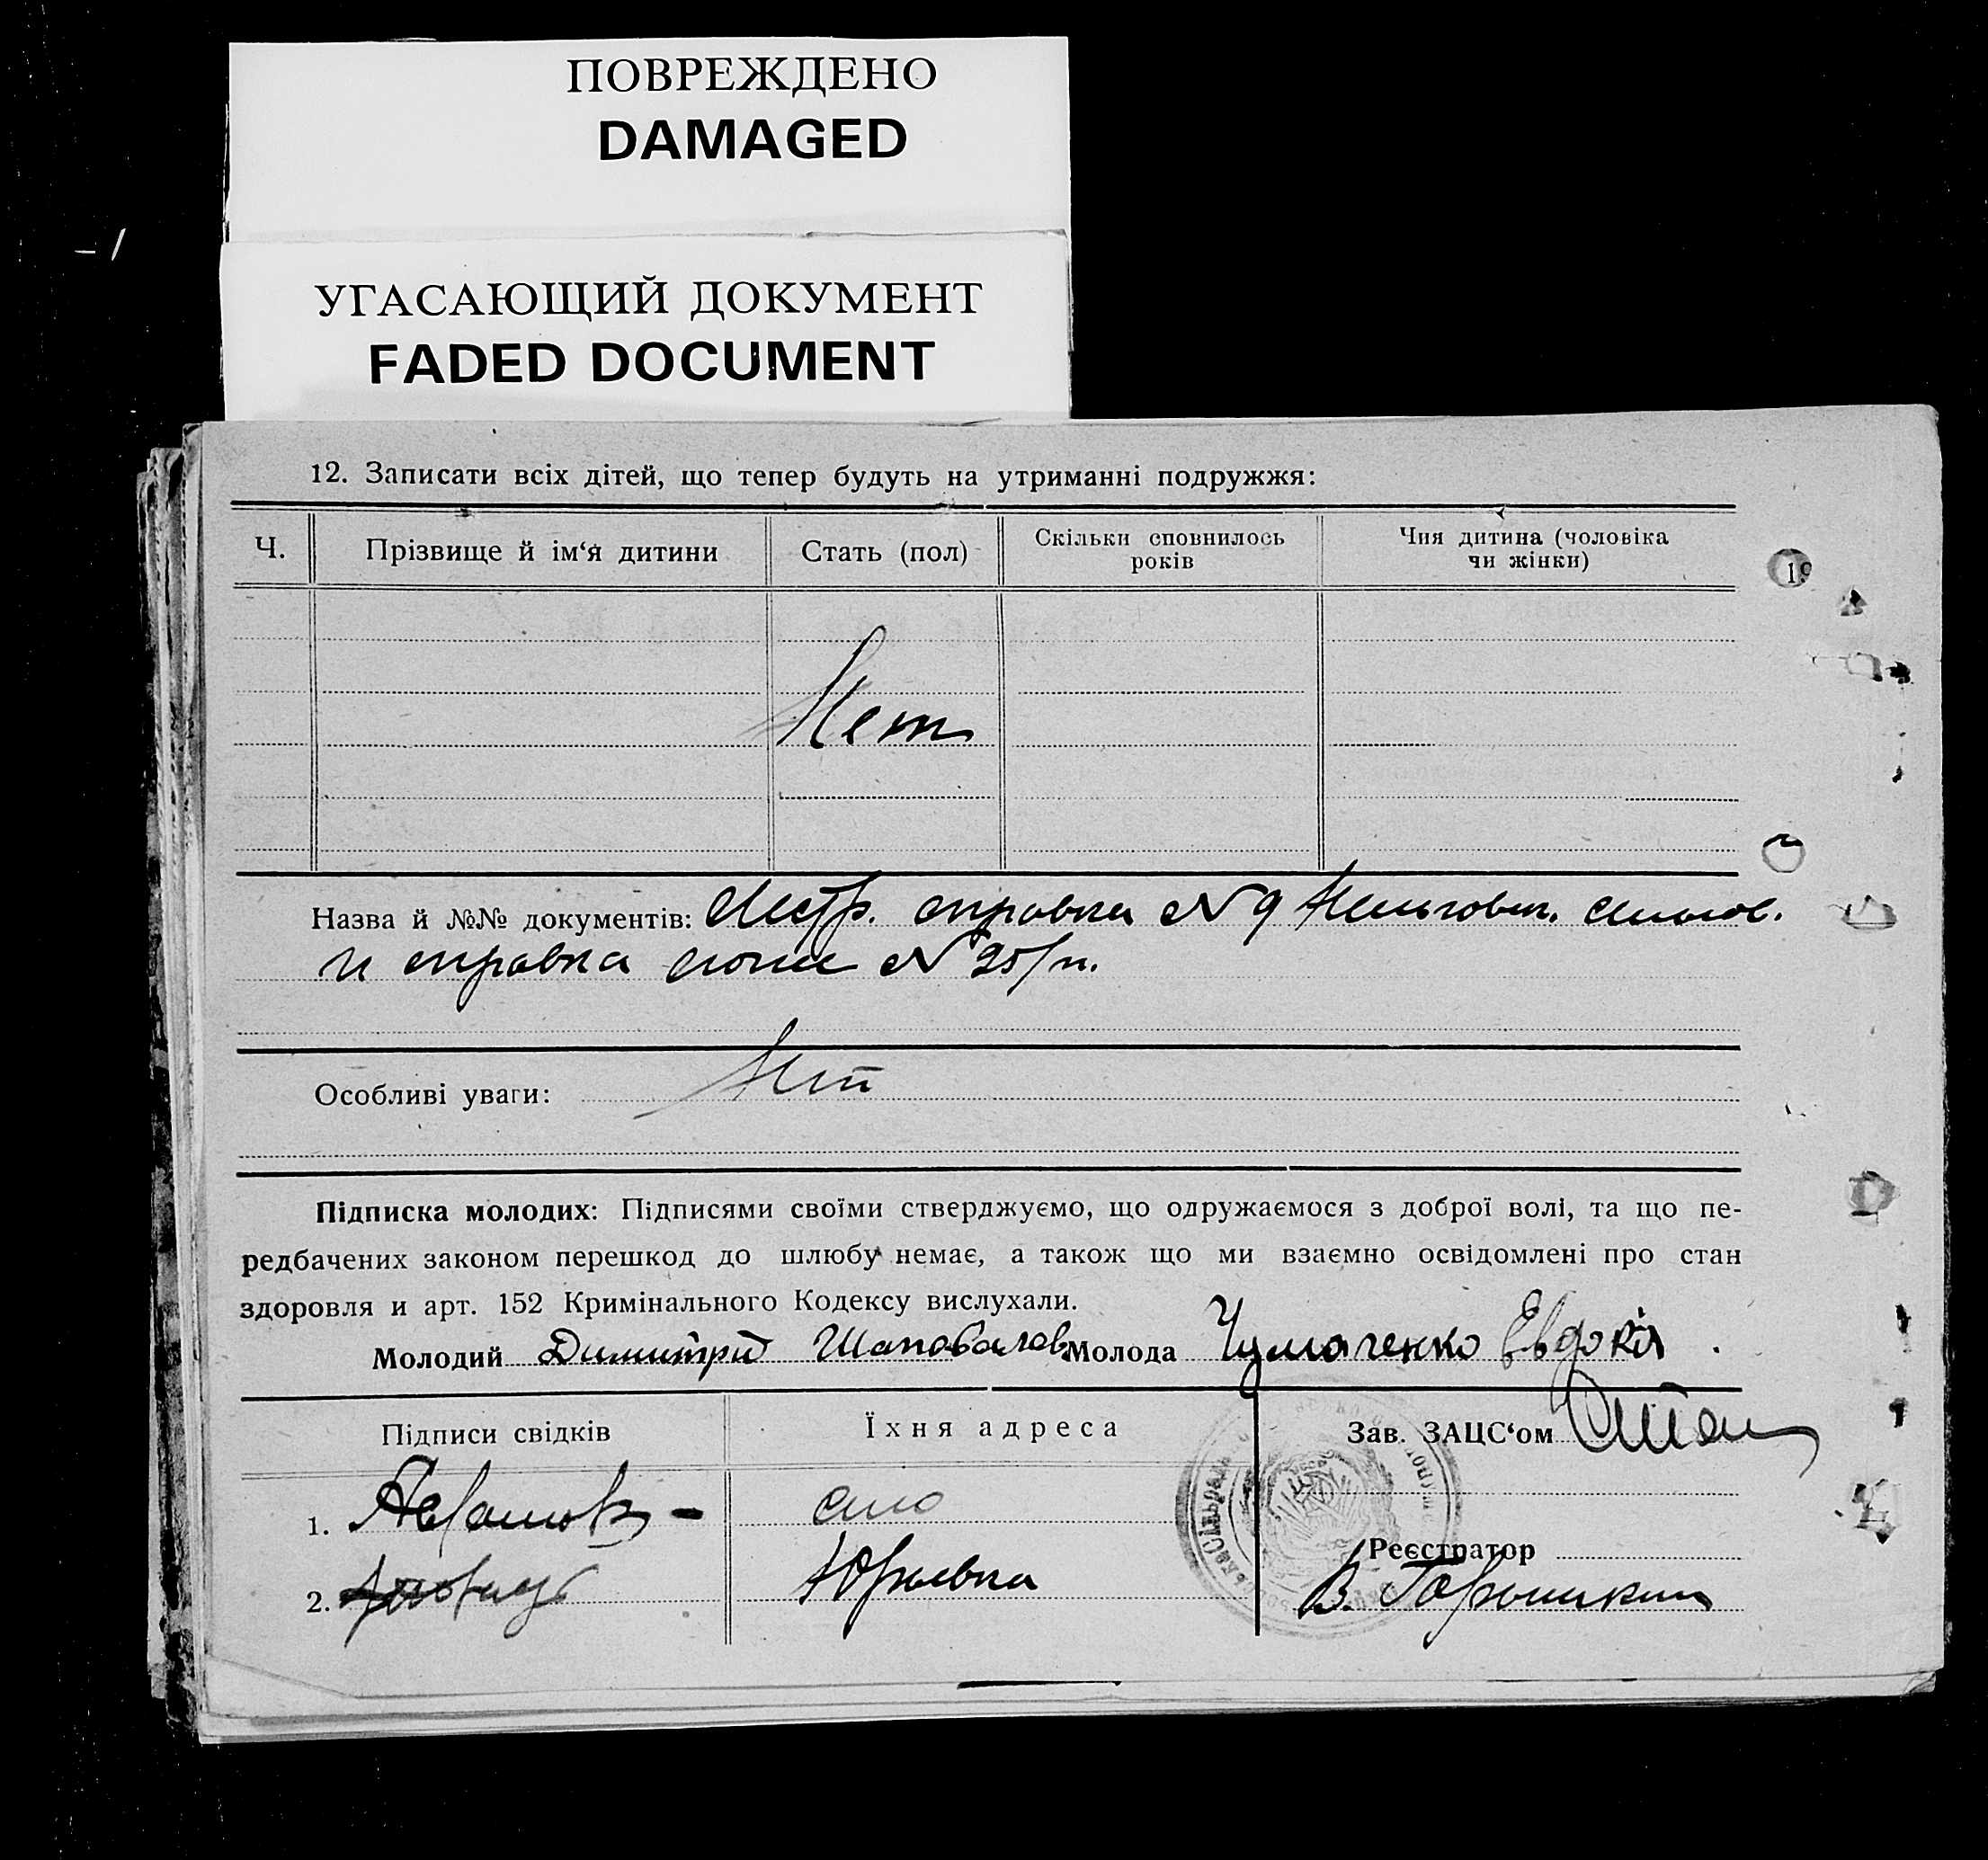 ПОВРЕЖДЕНО
DAMAGED
УГАСАЮЩИЙ ДОКУМЕНТ
FADED DOCUMENT
12. Записати всіх дітей, що тепер будуть на утриманні подружжя:
Ч. Прізвище й ім‘я дитини Стать (пол) Скільки сповнилось років Чия дитина (чоловіка чи жінки)
Нет
Назва й №№ документів: справка N 9
и справка N 25/п.
Особливі уваги: Нет
Підписка молодих: Підписями своїми стверджуємо, що одружаємося з доброї волі, та що пе-
редбачених законом перешкод до шлюбу немає, а також що ми взаємно освідомлені про стан
здоровля и арт. 152 Кримінального Кодексу вислухали.
Молодий Димитрий Шаповалов Молода Чумаченко Евдокія.
Підписи свідків Їхня адреса Зав. ЗАЦС‘ом
1. село
Реєстратор
2. Юрьевка В.